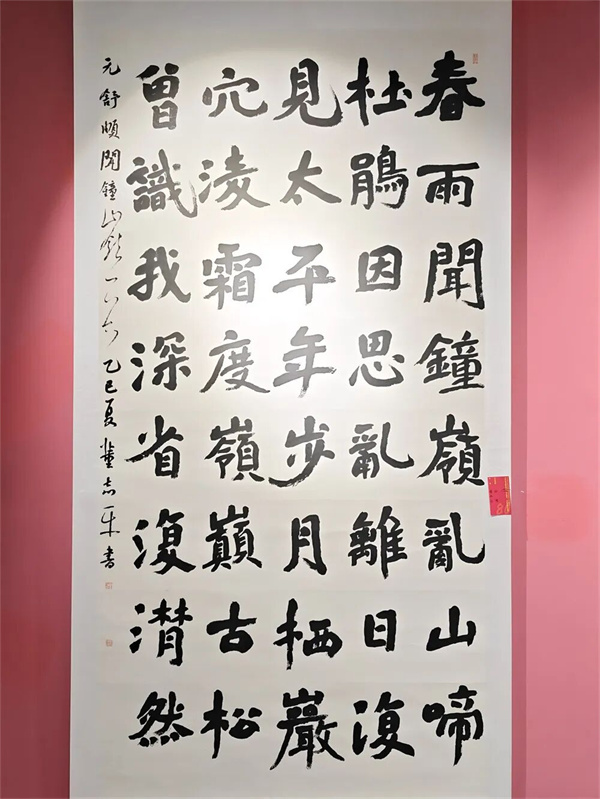 春雨聞鐘嶺亂山啼
杜鵑因思亂離日復
見太平年步月栖巖
穴淩霜度嶺巔古松
曾識我深省復潸然
元舒頔聞鐘 乙巳夏董志 書